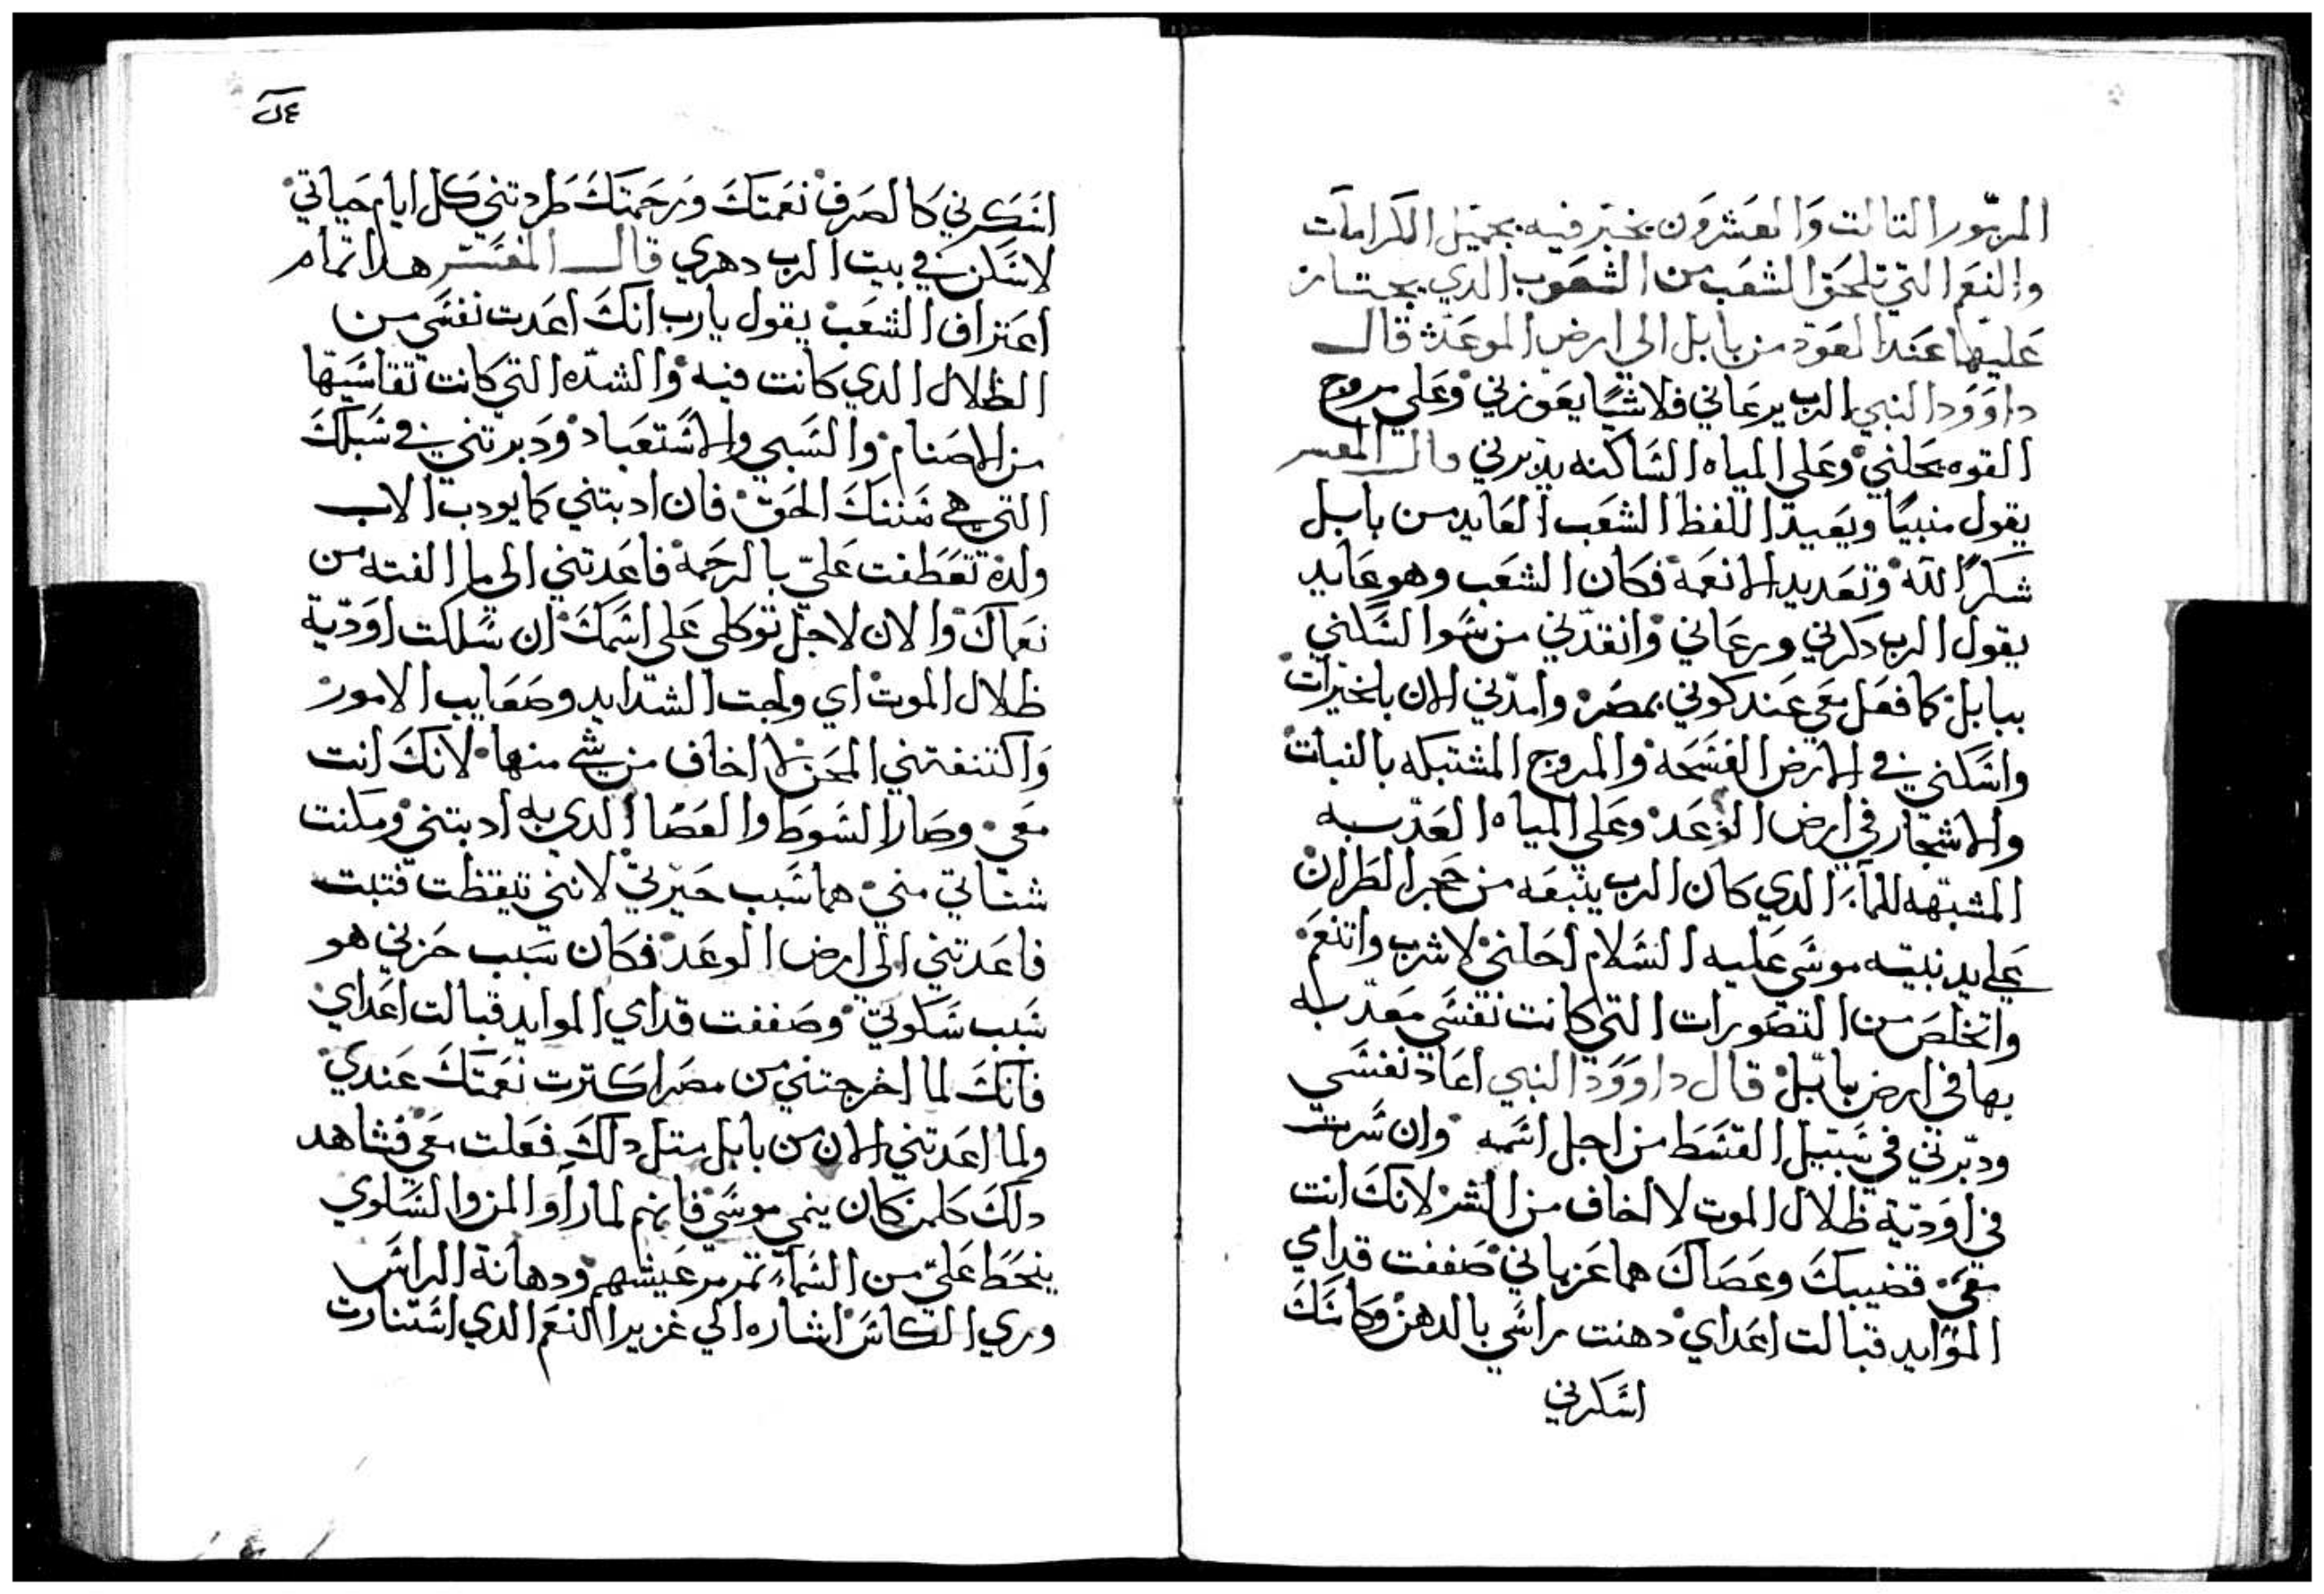 المزمور التالت والعشرون يخبر فيه بجميل الكرامات
والنعم التي تلحق الشعب من الشعوب الدي يجتاز
عليها عند العود من بابل الي ارض الموعد قال
داوود النبي الرب يرعاني فلا شيا يعوزني وعلي مروج
القوه يحلني وعلي المياه الساكنه يدبرني قال المفسر
يقول منبيا ويعيد اللفظ الشعب العايد من بابل
شكرا لله وتعديد الانعمه فكان الشعب وهو عايد
يقول الرب دكرني ورعاني وانقدني من سوا السكني
ببابل كما فعل معي عند كوني بمصر وامدني الان بالخيرات
واسكنني في الارض الفسحه والمروج المشتبكه بالنبات
والاشجار في ارض الوعد وعلي المياه العدبه
المشبهه للماء الدي كان الرب ينبعه من حجر الطران
علي يد نبيه موسي عليه السلام احلني لاشرب واتنعم
واتخلص من التصورات التي كانت نفسي معدبه
بها في ارض بابل قال داوود النبي اعاد نفسي
ودبرني في سبيل القسط من اجل اسمه وان سرت
في اودية ظلال الموت لا اخاف من الشر لانك انت
معي قضيبك وعصاك هما عزياني صففت قدامي
الموايد قبالت اعداي دهنت راسي بالدهن وكاسك
اسكرني
اسكرني كالصرف نعمتك ورحمتك طردتني كل ايام حياتي
لاسكن في بيت الرب دهري قال المفسر هدا تمام
اعتراف الشعب يقول يارب انك اعدت نفسي من
الظلال الدي كانت فيه والشده التي كانت تقاسيها
من الاصنام والسبي والاستعباد ودبرتني في سبلك
التي هي سننك الحق فان ادبتني كما يودب الاب
ولده تعطفت علي بالرحمة فاعدتني الي ما الفته من
نعماك والان لاجل توكلي علي اسمك ان سلكت اودية
ظلال الموت اي ولجت الشدايد وصعايب الامور
واكتنفتني المحن لا اخاف من شي منها لانك انت
معي وصار السوط والعصا الدي به ادبتني ومكنت
شناتي مني هما سبب حيرتي لانني تيقظت فتبت
فاعدتني الي ارض الوعد فكان سبب حزني هو
سبب سكوني وصففت قداي الموايد قبالت اعداي
فانك لما اخرجتني من مصر اكترت نعمتك عندي
ولما اعدتني الان من بابل متل دلك فعلت معي فشاهد
دلك كلمن كان ينمي موسي فانهم لما راوا المن والسلوي
ينحط علي من السماء تمرمر عيشهم ودهانة الراس
وري الكاس اشاره الي غزير النعم الدي استنارت